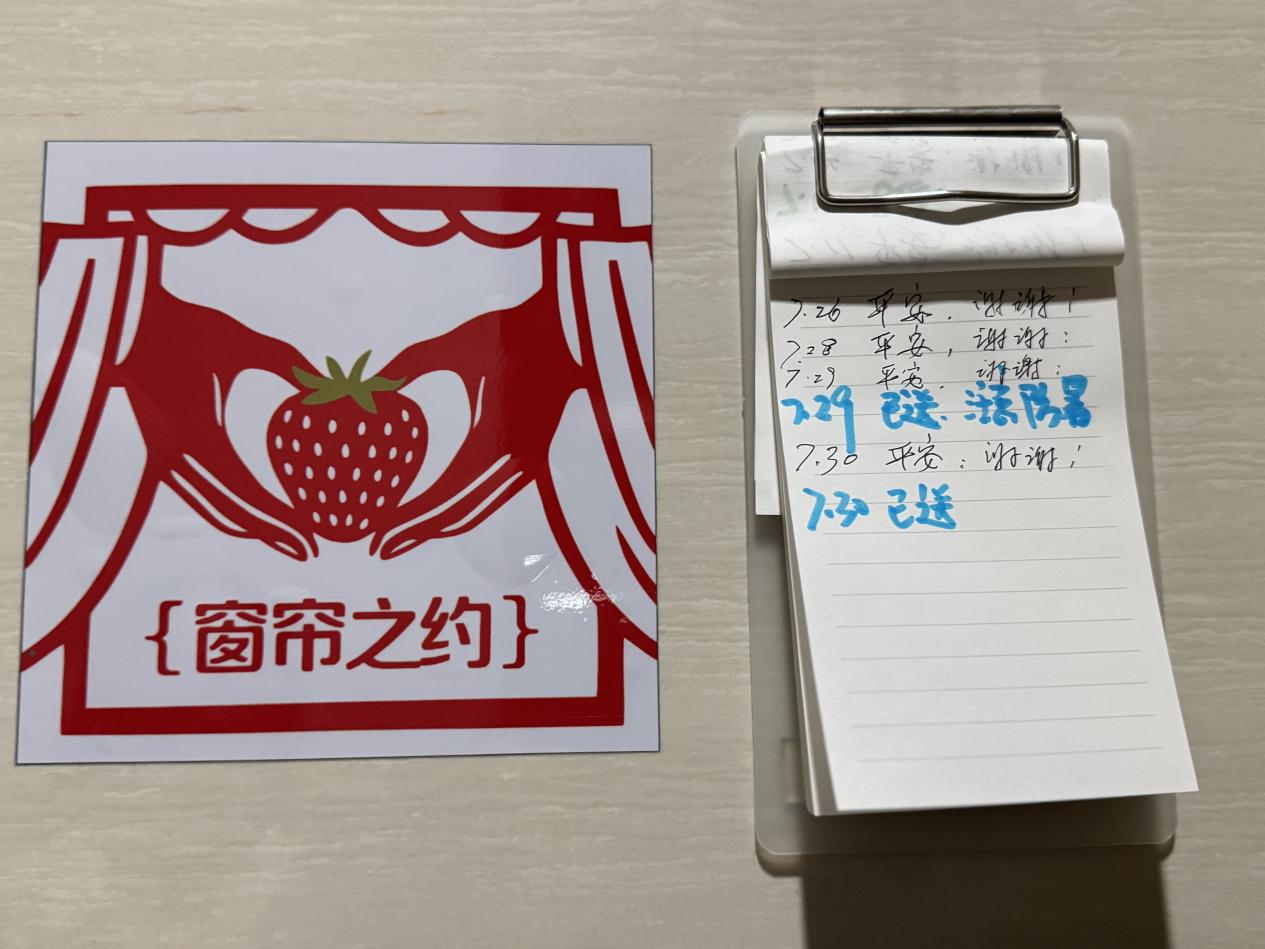 {窗帘之约}
7.26 平安，谢谢！
7.28 平安，谢谢！
7.29 平安，谢谢！
7.29 已送、
7.30 平安：谢谢！
7.30 已送